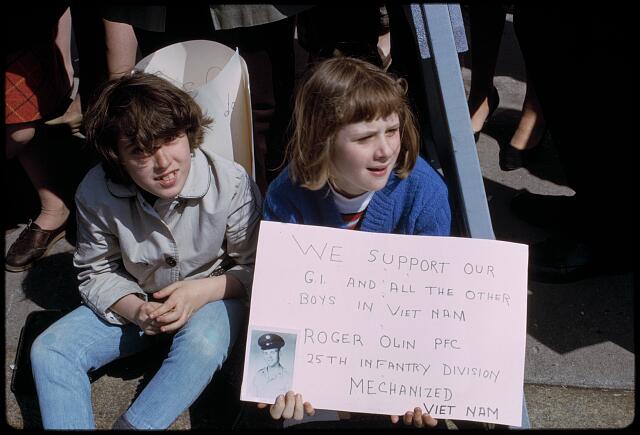 WE SUPPORT OUR
G.I. AND ALL THE OTHER
BOYS IN VIET NAM
ROGER OLIN PFC
25TH INFANTRY DIVISION
MECHANIZED
VIET NAM